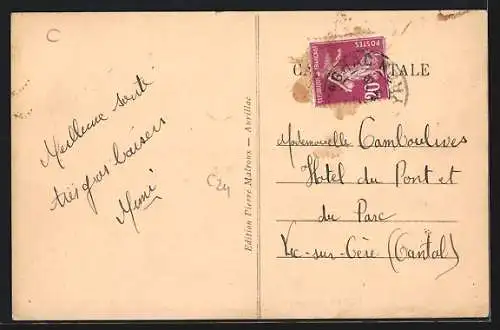 C
CARTE POSTALE
POSTES
REPUBLIQUE FRANÇAISE
20c
Meilleure santé
très gros baisers
Mimi
C24
Edition Pierre Malroux — Aurillac
Mademoiselle Camboulives
Hôtel du Pont et
du Parc
Vic-sur-Cère (Cantal)